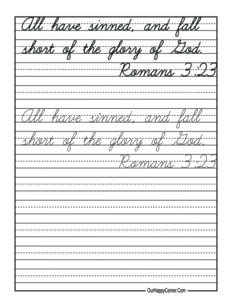 All have sinned, and fall
short of the glory of God.
Romans 3:23
All have sinned, and fall
short of the glory of God.
Romans 3:23
OurHappyCorner.Com